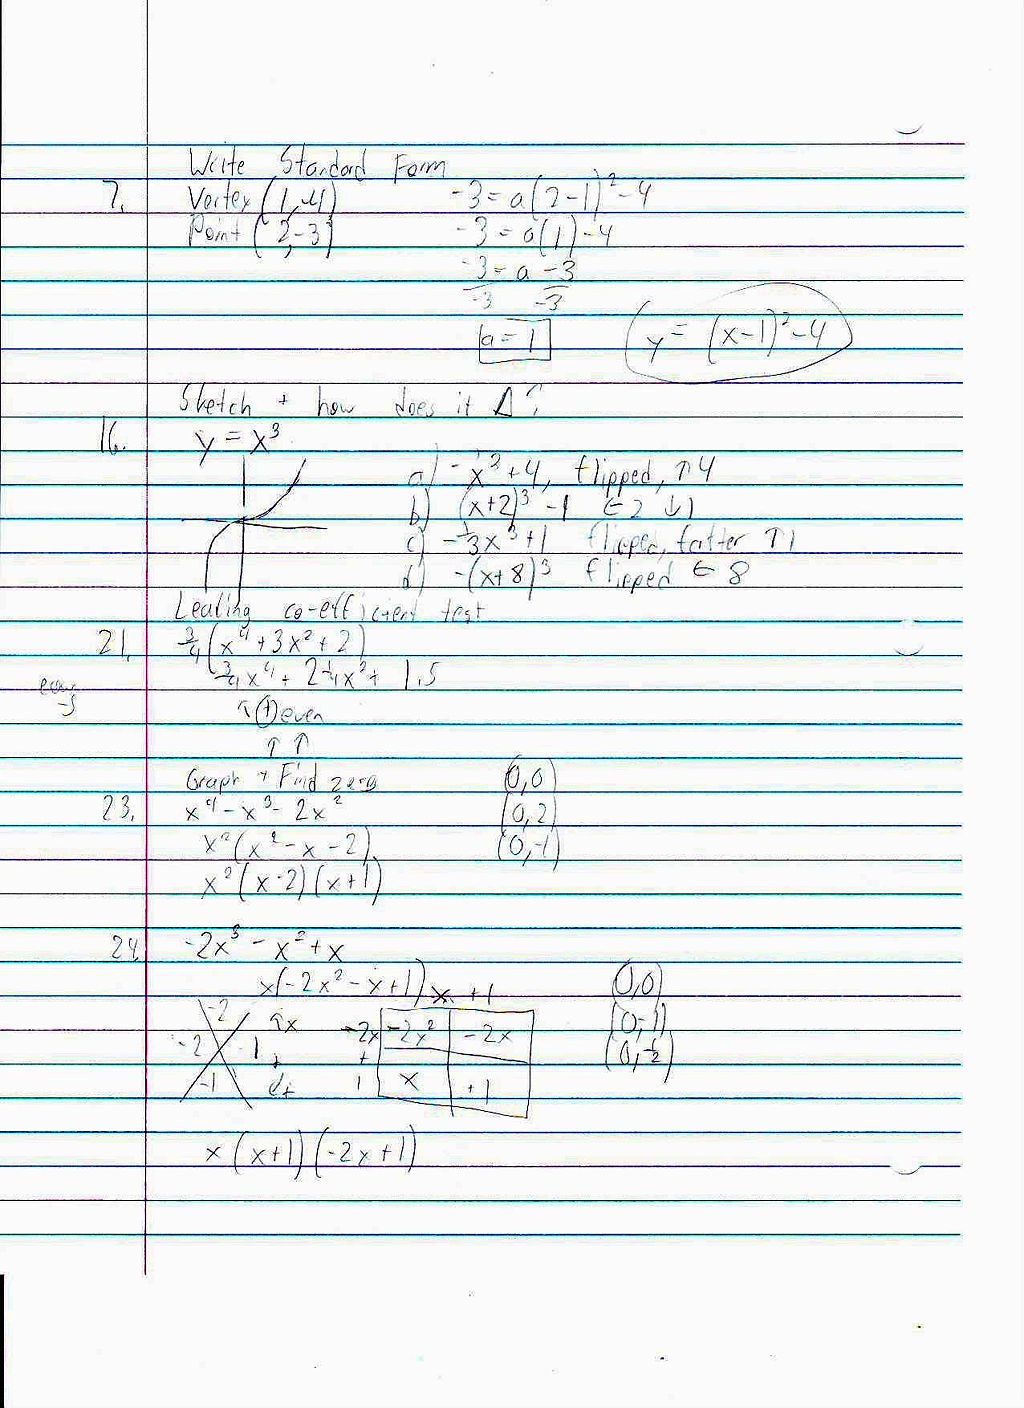 Write Standard Form
7. Vertex (1,-4) -3 = a(2-1)² -4
Point (2,-3) -3 = a(1) -4
-3 = a -3
-3 -3
a = 1 y = (x-1)² -4
Sketch + how does it Δ?
16. y = x³
a) -x³+4, flipped, ↑4
b) (x+2)³ -1 ← 2 ↓1
c) -⅓x³+1 flipped, fatter ↑1
d) -(x+8)³ flipped ← 8
Leading co-efficient test
21. ¾(x⁴ + 3x² + 2)
¾x⁴ + 2¼x² + 1.5
↑ + even
↑ ↑
Graph + Find zeros (0,0)
23. x⁴ - x³ - 2x² (0,2)
x²(x² - x - 2) (0,-1)
x²(x-2)(x+1)
24. -2x³ - x² + x
x(-2x² - x + 1) x +1 (0,0)
-2 -2x -2x² -2x (0,-1)
-2 1 + (0,½)
-1 1 x +1
x(x+1)(-2x+1)